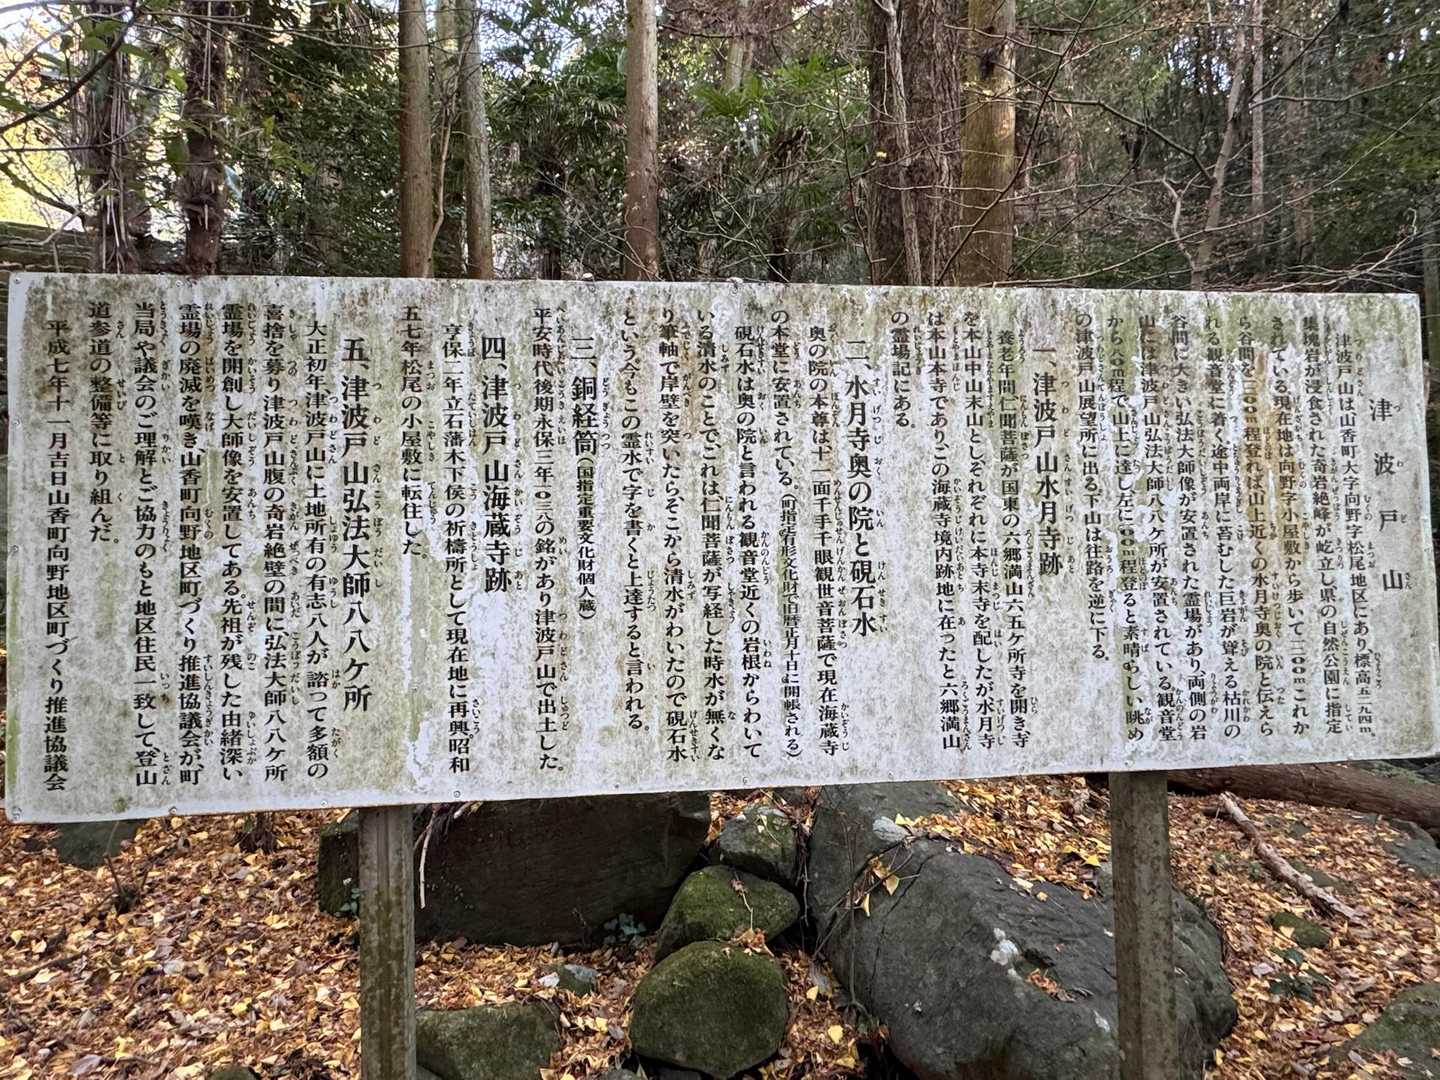 津波戸山
津波戸山は山香町大字向野字松尾地区にあり標高五二九四m。
集塊岩が浸食された奇岩絶峰が屹立し県の自然公園に指定
されている現在地は向野字小屋敷から歩いて三〇〇mこれか
ら谷間を三〇〇m程登れば山上近くの水月寺奥の院と伝えら
れる観音堂に着く途中両岸に苔むした巨岩が聳える枯川の
谷間に大きい弘法大師像が安置された霊場があり、両側の岩
山には津波戸山弘法大師八八ケ所が安置されている観音堂
から八〇m程で山上に達し左に三〇〇m程登ると素晴らしい眺め
の津波戸山展望所に出る下山は往路を逆に下る。
一、津波戸山水月寺跡
養老年間仁聞菩薩が国東の六郷満山六五ケ所寺を開き寺
を本山中山末山としそれぞれに本寺末寺を配したが水月寺
は本山本寺であり、この海蔵寺境内跡地に在ったと六郷満山
の霊場記にある。
二、水月寺奥の院と硯石水
奥の院の本尊は十一面千手千眼観世音菩薩で現在海蔵寺
の本堂に安置されている。(町指定有形文化財で旧暦正月十日に開帳される)
硯石水は奥の院と言われる観音堂近くの岩根からわいて
いる清水のことで、これは、仁聞菩薩が写経した時水が無くな
り筆軸で岸壁を突いたらそこから清水がわいたので硯石水
という今もこの霊水で字を書くと上達すると言われる。
三、銅経筒(国指定重要文化財個人蔵)
平安時代後期永保三年一〇三の銘があり津波戸山で出土した。
四、津波戸山海蔵寺跡
享保二年立石藩木下侯の祈禱所として現在地に再興。昭和
五七年松尾の小屋敷に転住した。
五、津波戸山弘法大師八八ケ所
大正初年、津波戸山に土地所有の有志八人が諮つて多額の
喜捨を募り津波戸山腹の奇岩絶壁の間に弘法大師八八ケ所
霊場を開創し大師像を安置してある。先祖が残した由緒深い
霊場の廃滅を嘆き、山香町向野地区町づくり推進協議会が、町
当局や議会のご理解とご協力のもと地区住民一致して、登山
道参道の整備等に取り組んだ。
平成七年十一月吉日山香町向野地区町づくり推進協議会